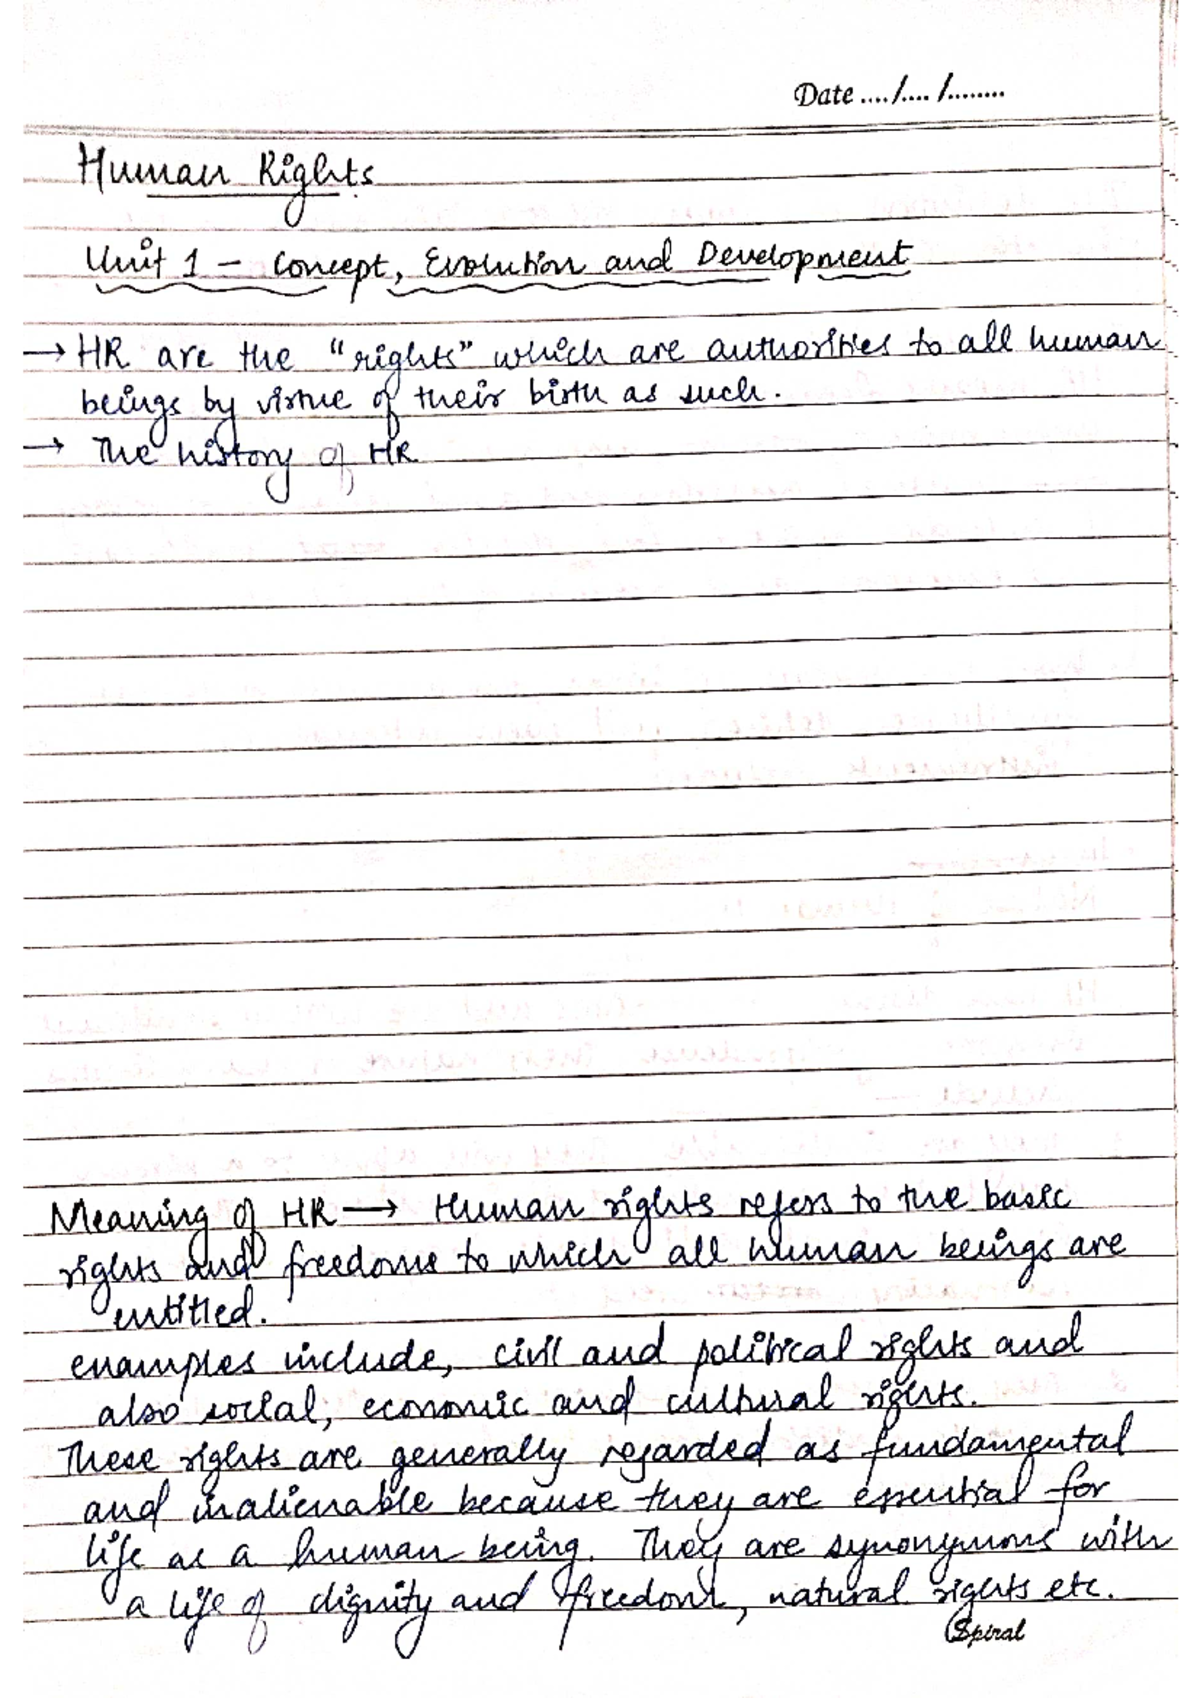 Date ..../..../........
Human Rights
Unit 1 – Concept, Evolution and Development
→ HR are the "rights" which are authorities to all human
beings by virtue of their birth as such.
→ The history of HR
Meaning of HR → Human rights refers to the basic
rights and freedoms to which all human beings are
entitled.
examples include, civil and political rights and
also social, economic and cultural rights.
These rights are generally regarded as fundamental
and inalienable because they are essential for
life as a human being. They are synonymous with
a life of dignity and freedom, natural rights etc.
Spiral